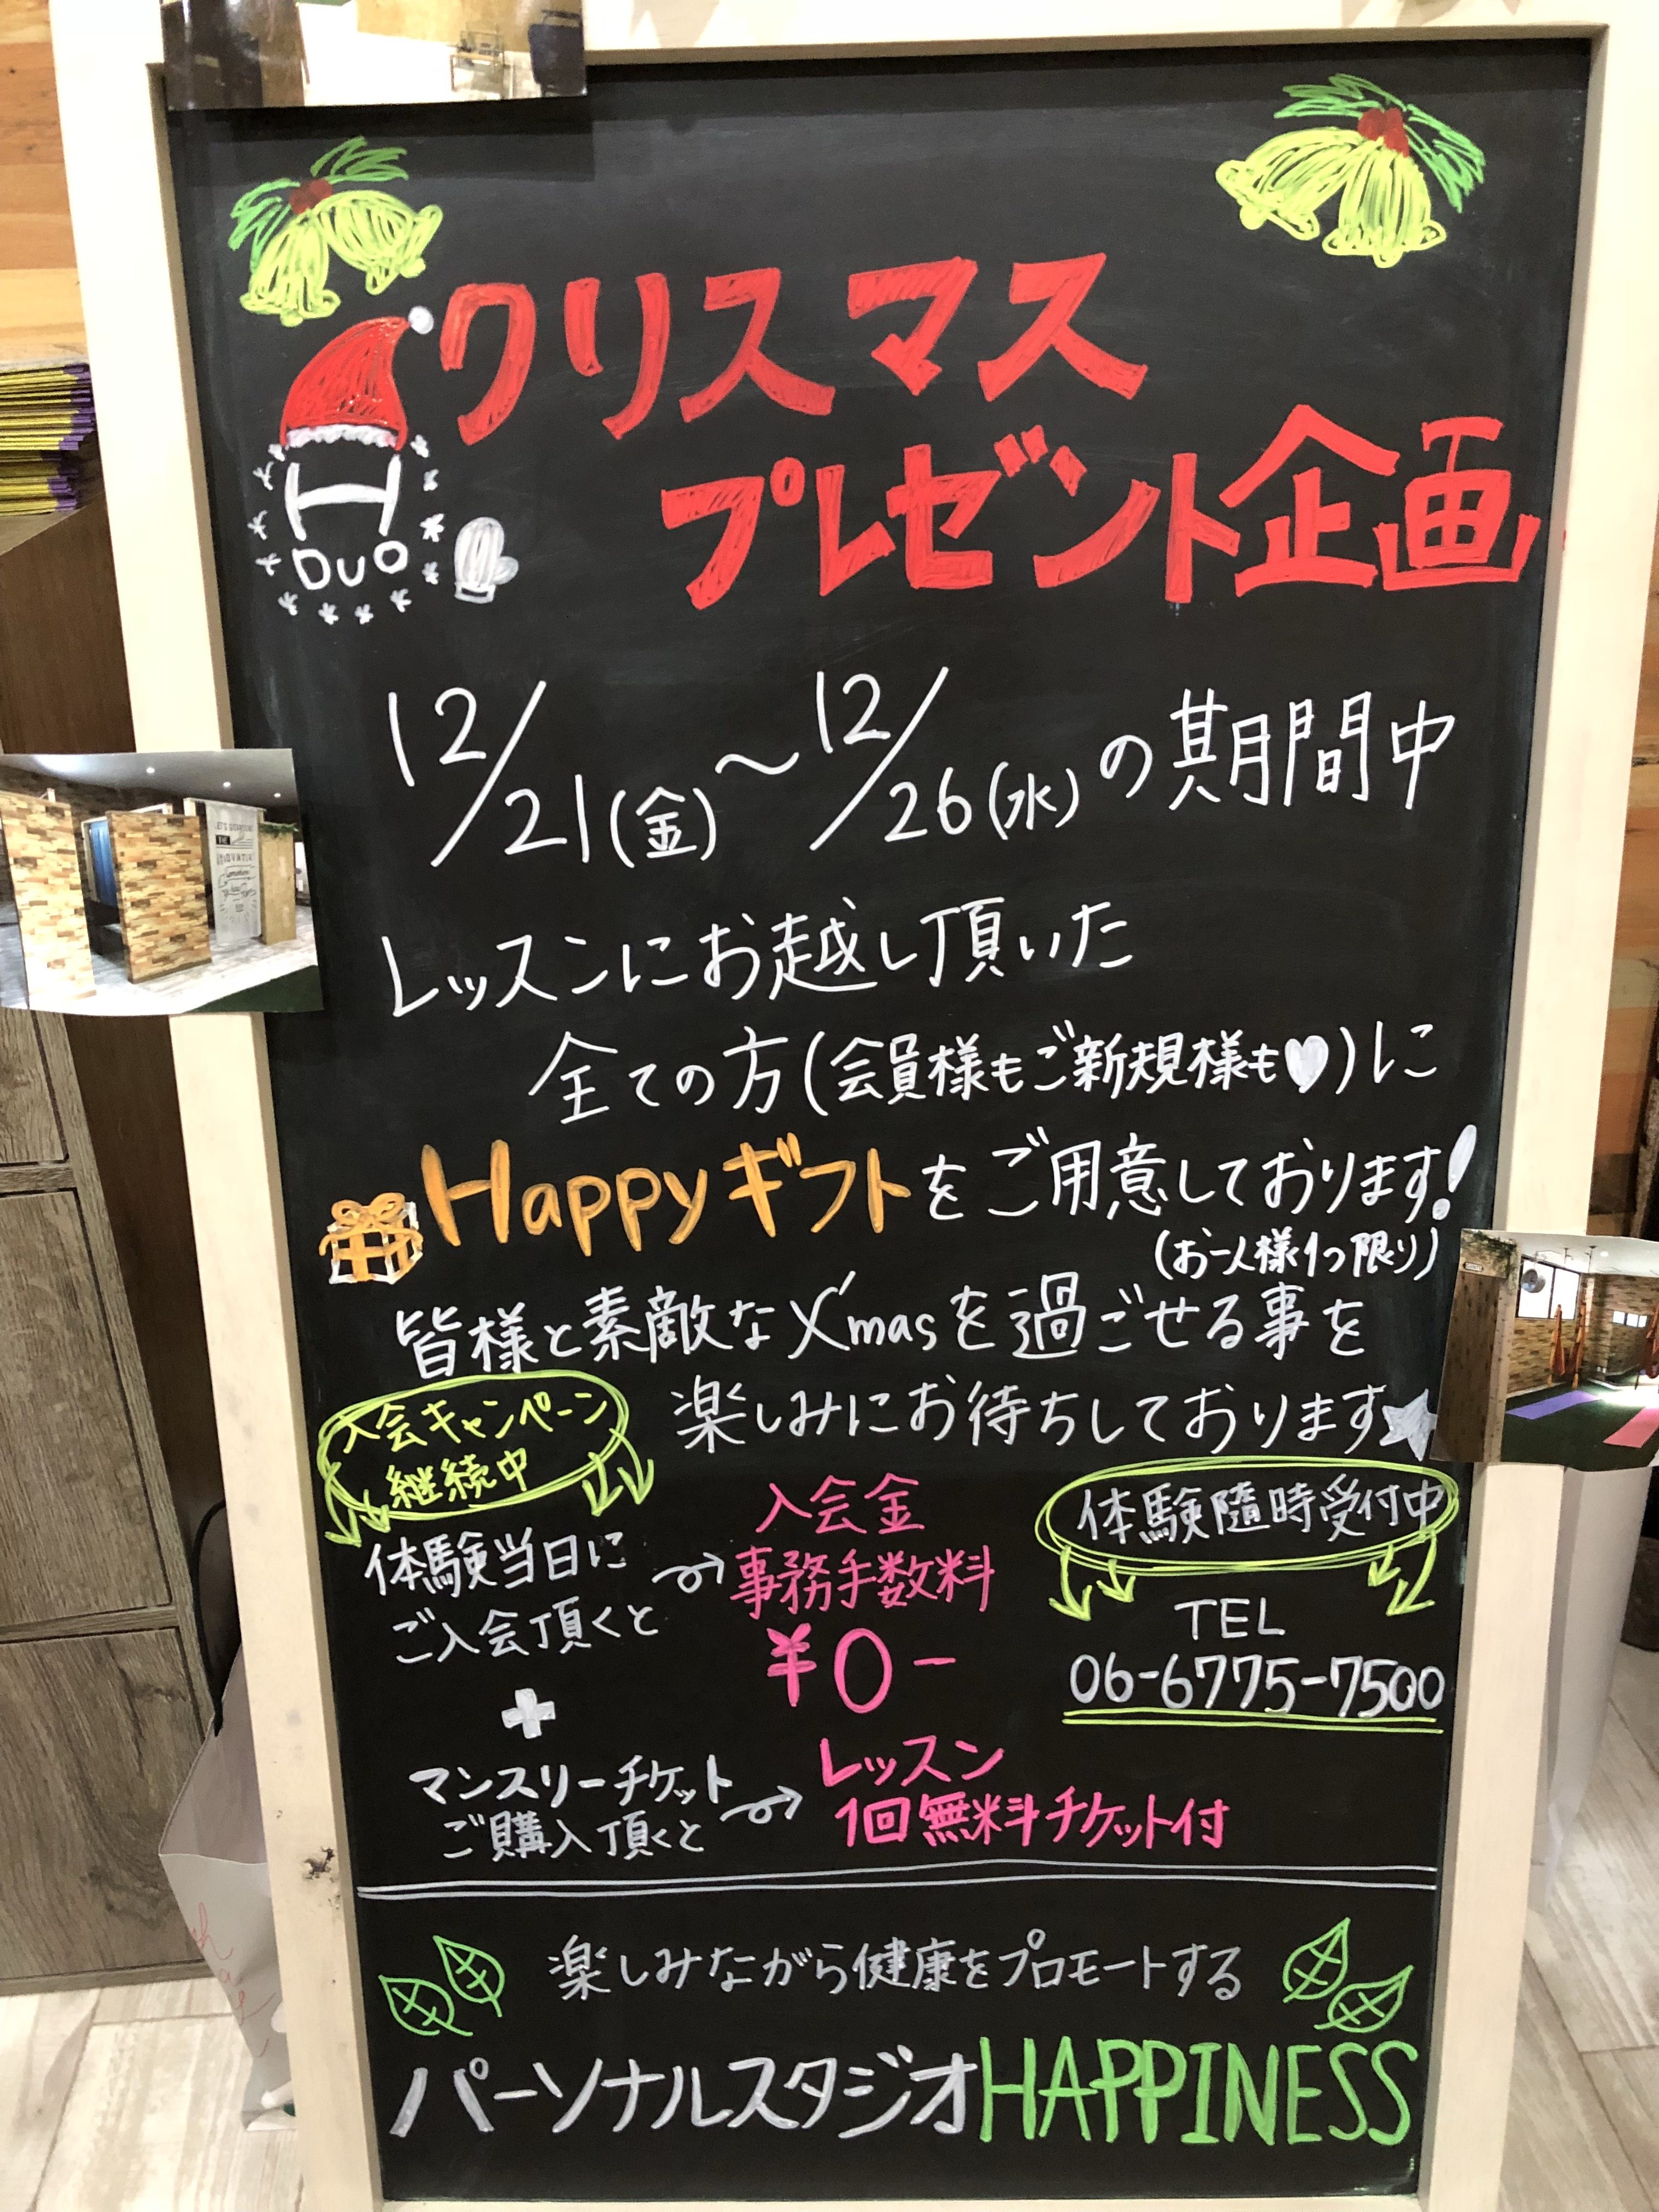 クリスマス
プレゼント企画
H
DUO
12/21(金)～12/26(水)の期間中
レッスンにお越し頂いた
全ての方(会員様もご新規様も♥)に
Happyギフトをご用意しております!
(お一人様1つ限り)
皆様と素敵なX'masを過ごせる事を
楽しみにお待ちしております★
入会キャンペーン
継続中
体験当日に
ご入会頂くと
入会金
事務手数料
¥0-
+
マンスリーチケット
ご購入頂くと
レッスン
1回無料チケット付
体験随時受付中
TEL
06-6775-7500
楽しみながら健康をプロモートする
パーソナルスタジオHAPPINESS